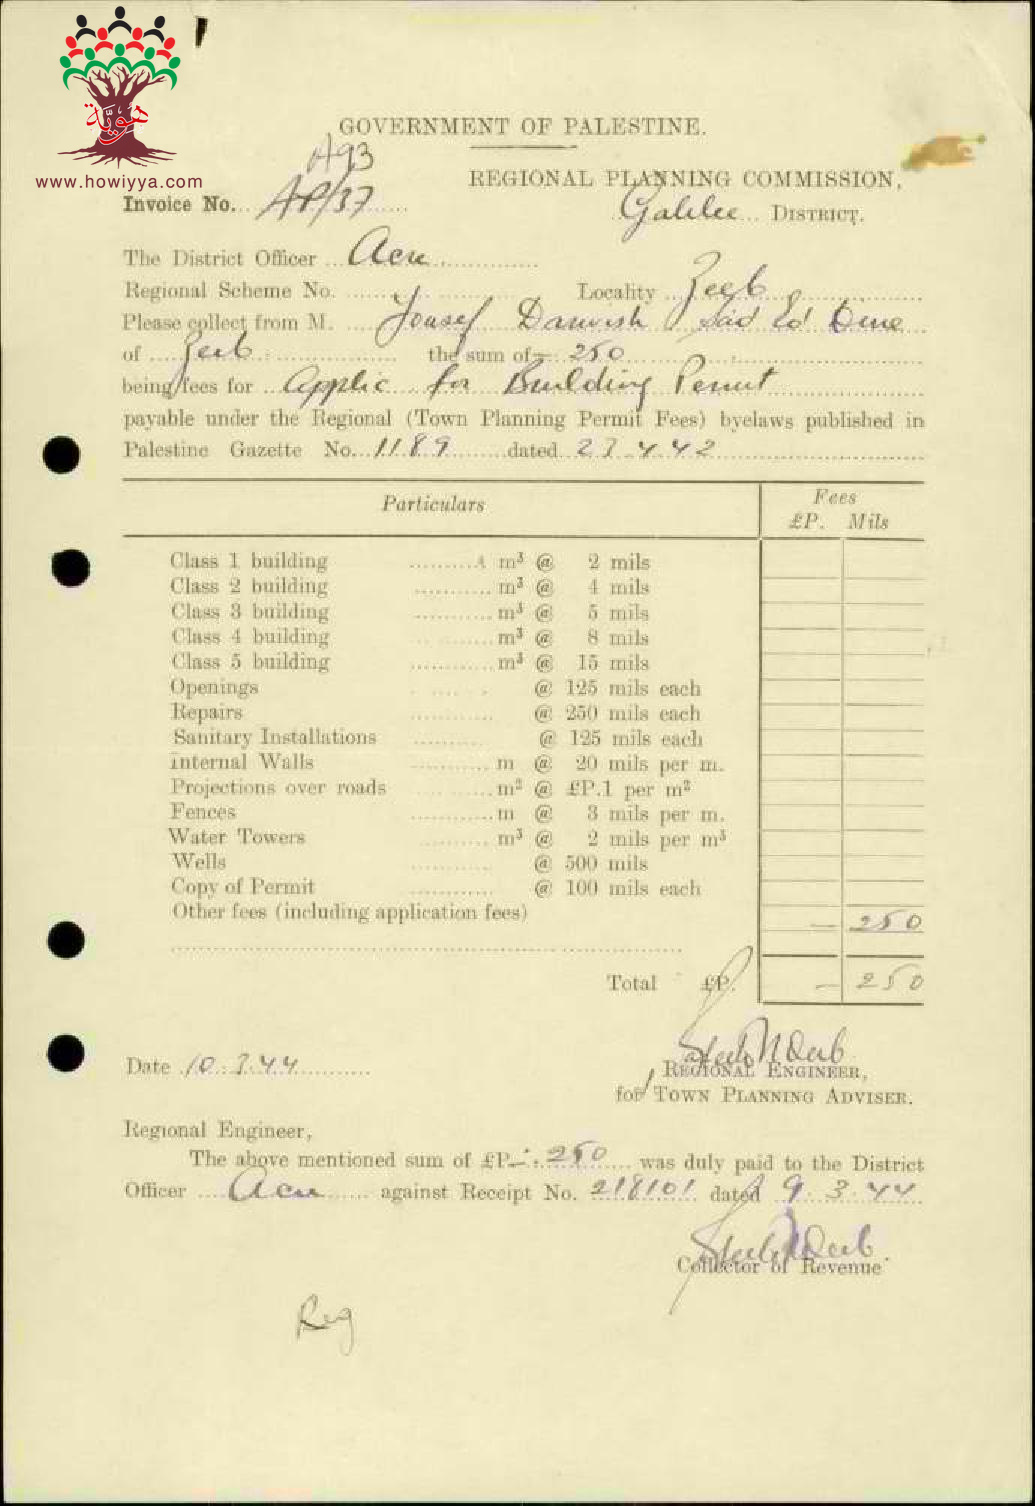 هويّة
www.howiyya.com
GOVERNMENT OF PALESTINE.
A93
REGIONAL PLANNING COMMISSION,
Invoice No. AP/37
Galilee DISTRICT.
The District Officer Acre
Regional Scheme No. Locality Zeeb
Please collect from M. Yousef Darwish Said Ed Dine
of Zeeb the sum of — 250
being fees for Applic for Building Permit
payable under the Regional (Town Planning Permit Fees) byelaws published in
Palestine Gazette No. 1189 dated 23.4.42
Particulars Fees
£P. Mils
Class 1 building m³ @ 2 mils
Class 2 building m³ @ 4 mils
Class 3 building m³ @ 5 mils
Class 4 building m³ @ 8 mils
Class 5 building m³ @ 15 mils
Openings @ 125 mils each
Repairs @ 250 mils each
Sanitary Installations @ 125 mils each
Internal Walls m @ 20 mils per m.
Projections over roads m² @ £P.1 per m²
Fences m @ 3 mils per m.
Water Towers m³ @ 2 mils per m³
Wells @ 500 mils
Copy of Permit @ 100 mils each
Other fees (including application fees) — 250
Total £P. — 250
Date 10.3.44
REGIONAL ENGINEER,
for TOWN PLANNING ADVISER.
Regional Engineer,
The above mentioned sum of £P —.250 was duly paid to the District
Officer Acre against Receipt No. 218101 dated 9.3.44
Collector of Revenue
Reg